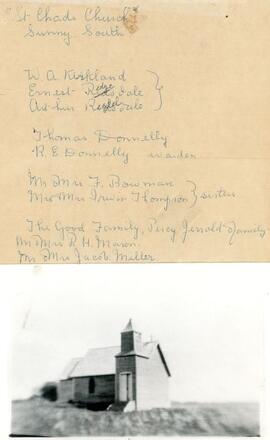 "St Chads Church"
Sunny South
W. A. Kirkland
Ernest Ridsdale
Arthur Ridsdale
Thomas Donnelly
R. E. Donnelly warden
Mr Mrs F. Bowman
Mr Mrs Irwin Thompson } sisters
The Good Family, Percy Jerrold family
Mr Mrs R. H. Mason.
Mr Mrs Jacob Miller